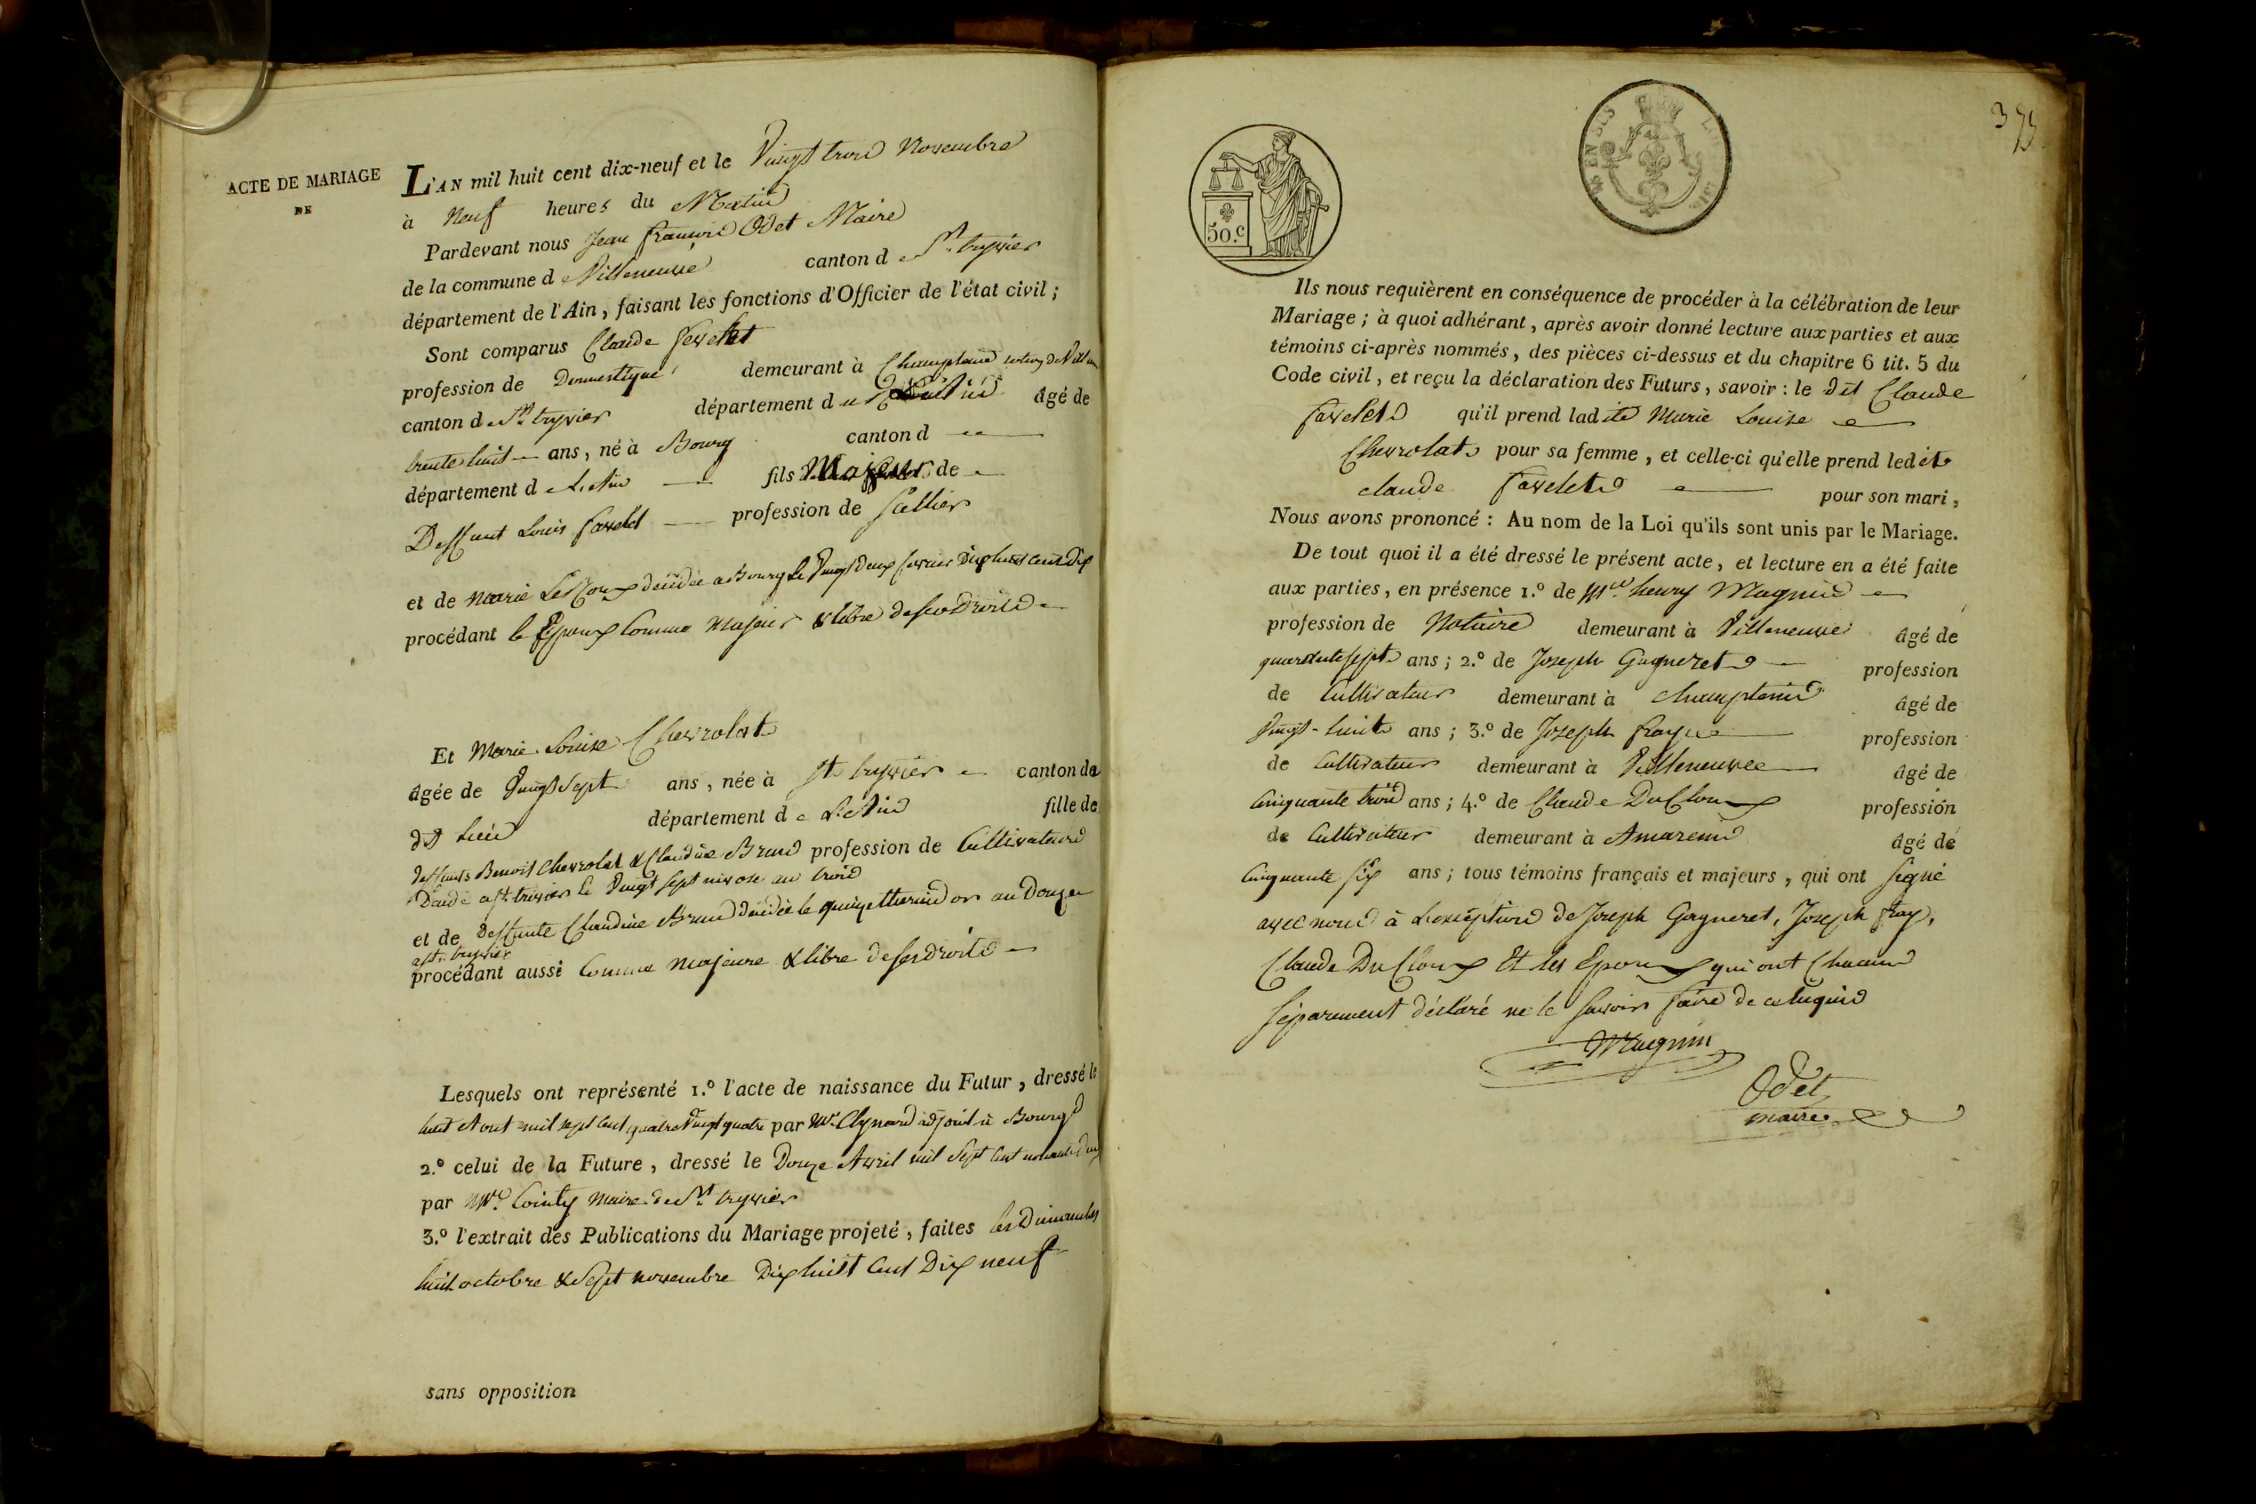 ACTE DE MARIAGE
DE
L'AN mil huit cent dix-neuf et le Vingt trois Novembre
à Neuf heures du Matin
Pardevant nous Jean françois Odet Maire
de la commune de Villeneuve canton de St. trivier
département de l'Ain, faisant les fonctions d'Officier de l'état civil;
Sont comparus Claude favelet
profession de Domestique demeurant à Champtenin
canton de St. trivier département de âgé de
trente huit ans, né à Bourg canton d
département de L'Ain fils Majeur de
Deffunt Louis favelet profession de Sellier
et de Marie décédée a Bourg le Vingt deux fevrier Dix huit cent Dix
procédant le Epoux comme majeur & libre de ses Droits
Et Marie Louise Chevrolat
âgée de Vingt Sept ans, née à St. trivier canton de
dt. Lieu département de L'Ain fille de
deffunts Benoit Chevrolat & Claudine Brun profession de Cultivateurs
Décédé a St. trivier le Vingt sept nivose an trois
et de Deffunte Claudine Brun décédée le quinze thermidor an Douze
a St. trivier
procédant aussi Comme majeure & libre de ses droits
Lesquels ont représenté 1.º l'acte de naissance du Futur, dressé le
huit Aout mil sept cent quatre Vingt quatre par Mr. adjoint à Bourg
2.º celui de la Future, dressé le Douze Avril mil Sept Cent nonante Deux
par Mr. Cointy Maire de St. trivier
3.º l'extrait des Publications du Mariage projeté, faites les Dimanches
huit octobre & Sept novembre Dix huit Cent Dix neuf
sans opposition
50.c
Ils nous requièrent en conséquence de procéder à la célébration de leur
Mariage; à quoi adhérant, après avoir donné lecture aux parties et aux
témoins ci-après nommés, des pièces ci-dessus et du chapitre 6 tit. 5 du
Code civil, et reçu la déclaration des Futurs, savoir: le dit Claude
favelet qu'il prend ladite Marie Louise
Chevrolat pour sa femme, et celle-ci qu'elle prend ledit
claude favelet pour son mari,
Nous avons prononcé: Au nom de la Loi qu'ils sont unis par le Mariage.
De tout quoi il a été dressé le présent acte, et lecture en a été faite
aux parties, en présence 1.º de Mre. henry Magnin
profession de Notaire demeurant à Villeneuve âgé de
quarante sept ans; 2.º de Joseph Gagneret profession
de Cultivateur demeurant à Champtenin âgé de
Vingt-huit ans; 3.º de Joseph fray profession
de Cultivateur demeurant à Villeneuve âgé de
Cinquante trois ans; 4.º de Claude DuCloux profession
de Cultivateur demeurant à Amareins âgé de
Cinquante Six ans; tous témoins français et majeurs, qui ont Signé
avec nous à L'exception de Joseph Gagneret, Joseph fray,
Claude DuCloux Et les Epoux qui ont Chacun
Séparement déclaré ne le Savoir faire de ce Requis
Magnin
Odet
maire